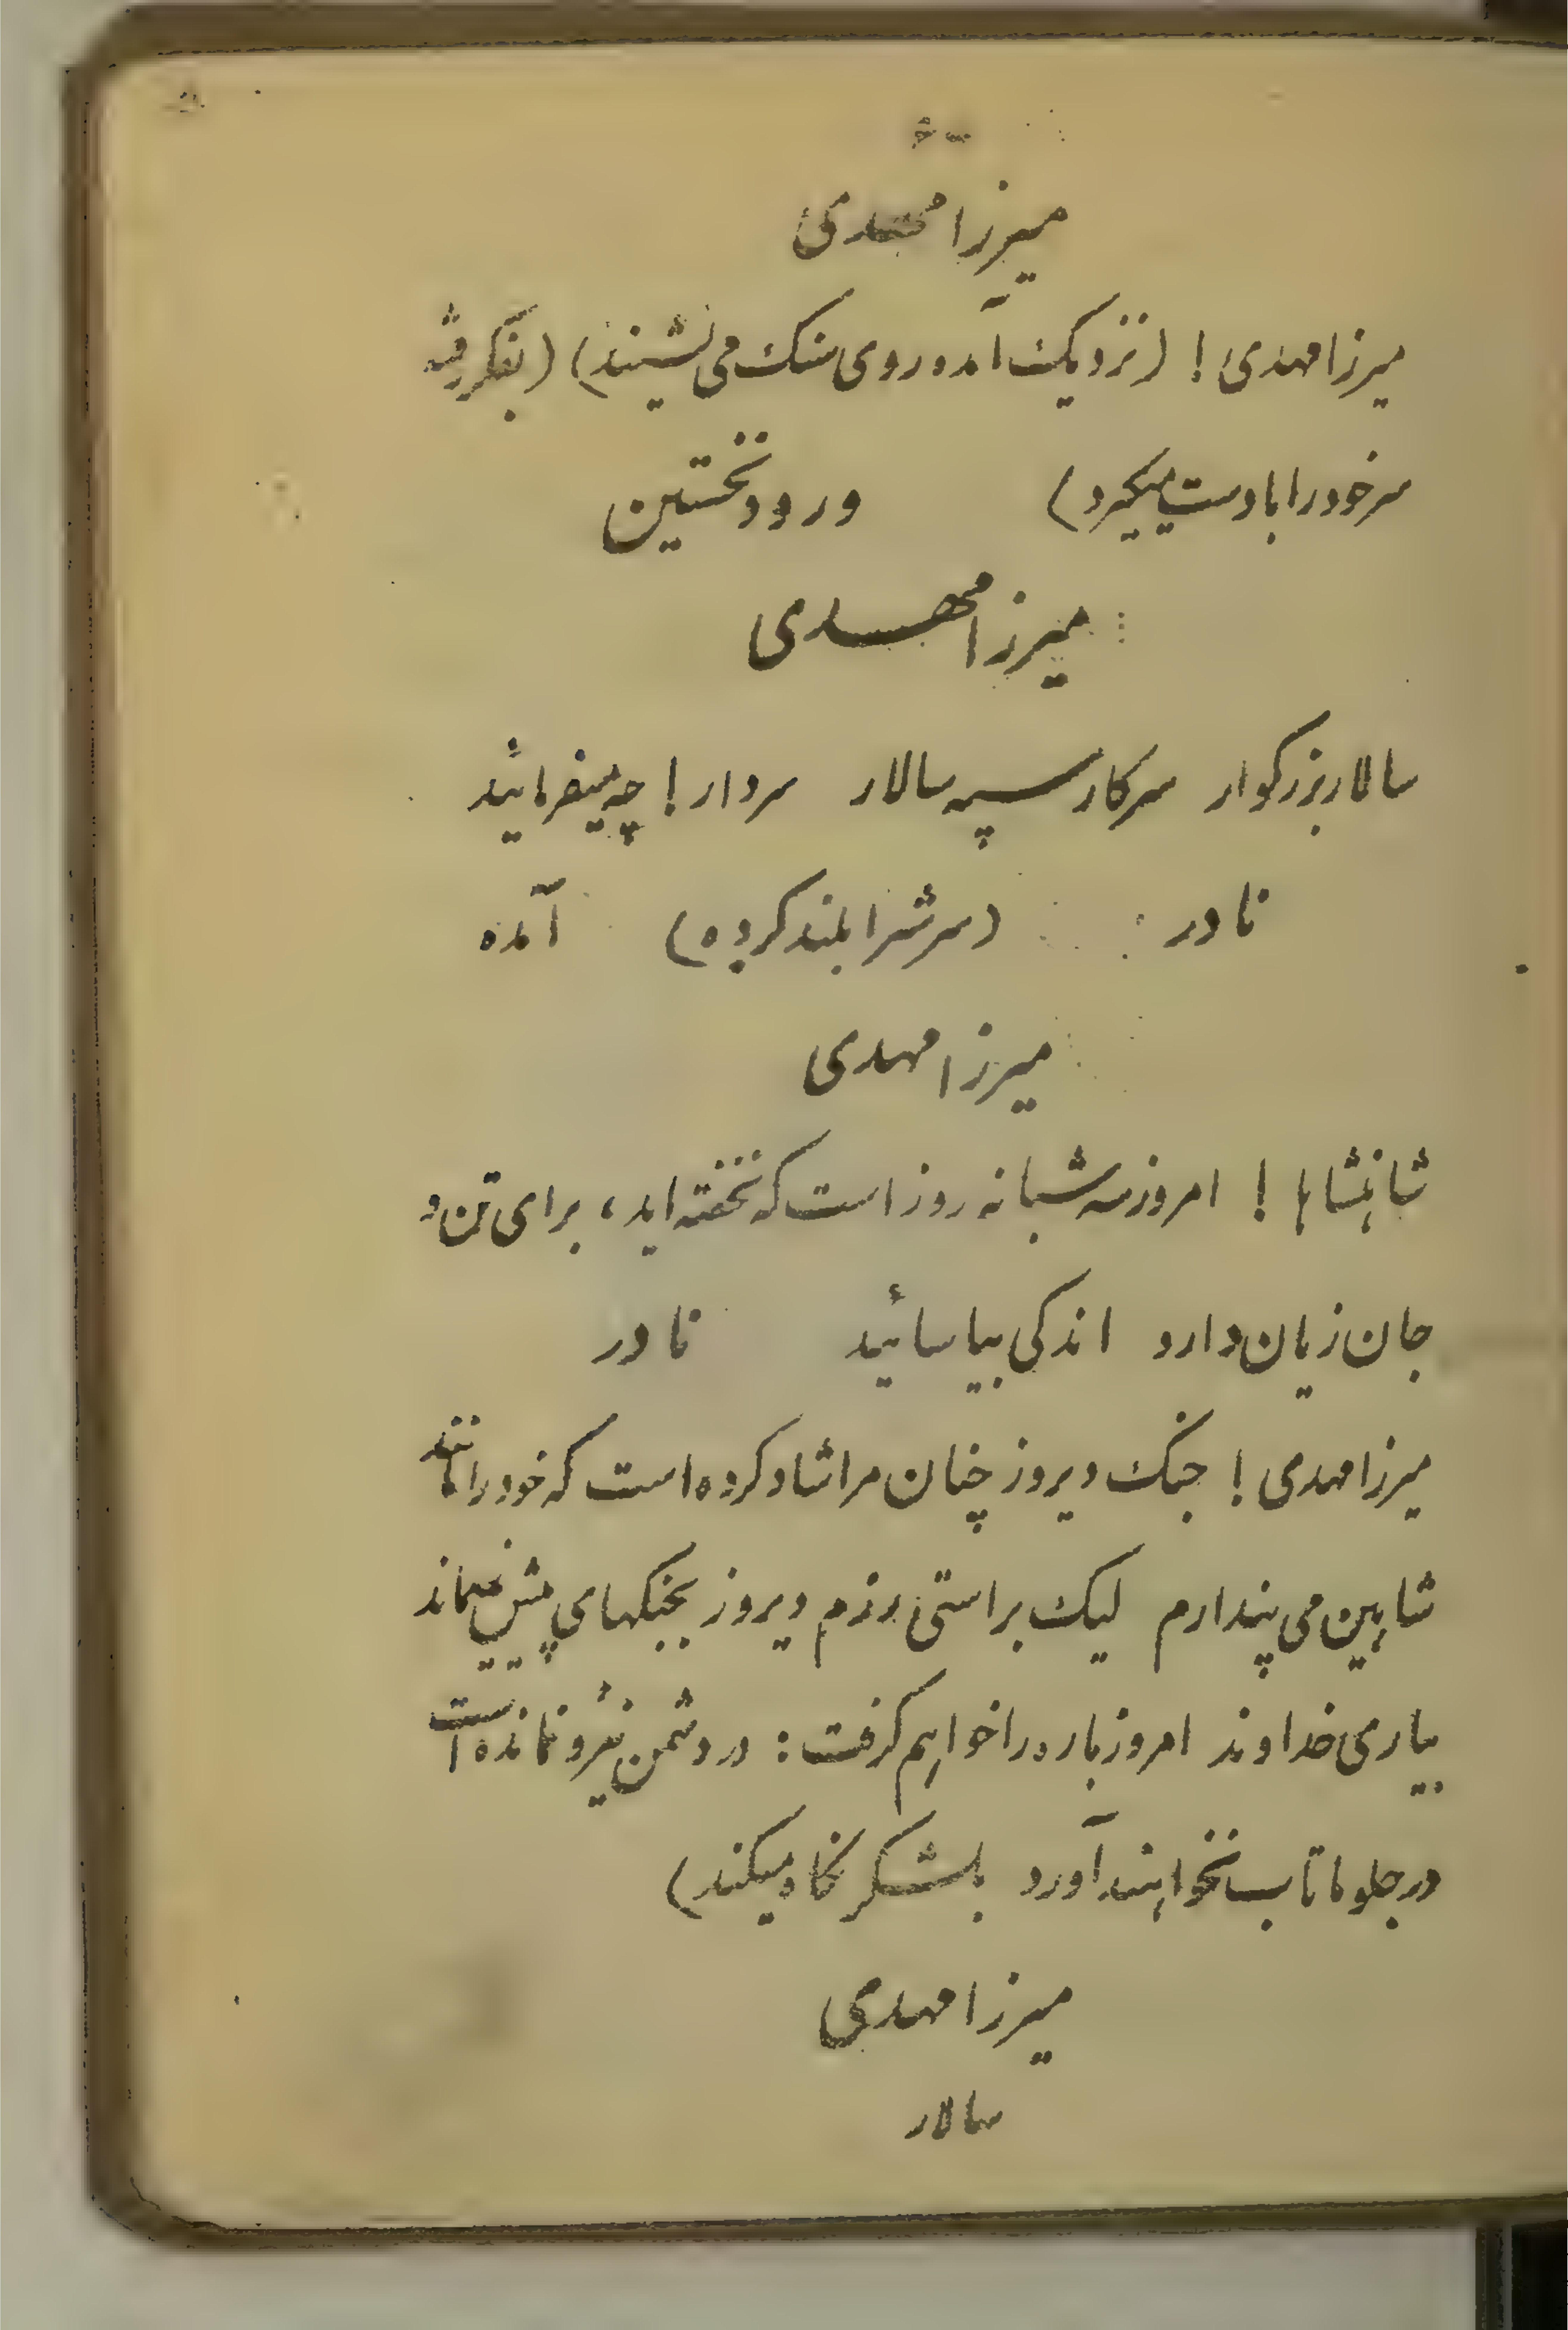 میرزا مهدی
میرزا مهدی! (نزدیک آمده روی سنک می نشیند) (بفکر رفته
سر خود را با دست میگیرد) ورود نخستین
میرزا مهدی
سالار بزرگوار سرکار سپه سالار سردار! چه میفرمائید
نادر : (سرش را بلند کرده) آمده
میرزا مهدی
شاهنشاها! امروز سه شبانه روز است که نخفته اید، برای تن و
جان زیان دارد اندکی بیاسائید نادر
میرزا مهدی! جنک دیروز چنان مرا شاد کرده است که خود را مانند
شاهین می پندارم لیک براستی رزم دیروز بجنکهای پیش نمیماند
بیاری خداوند امروز باره را خواهیم گرفت: در دشمن نیرو نمانده است
در جلو ما تاب نخواهند آورد بلشکر نگاه میکند)
میرزا مهدی
سالار